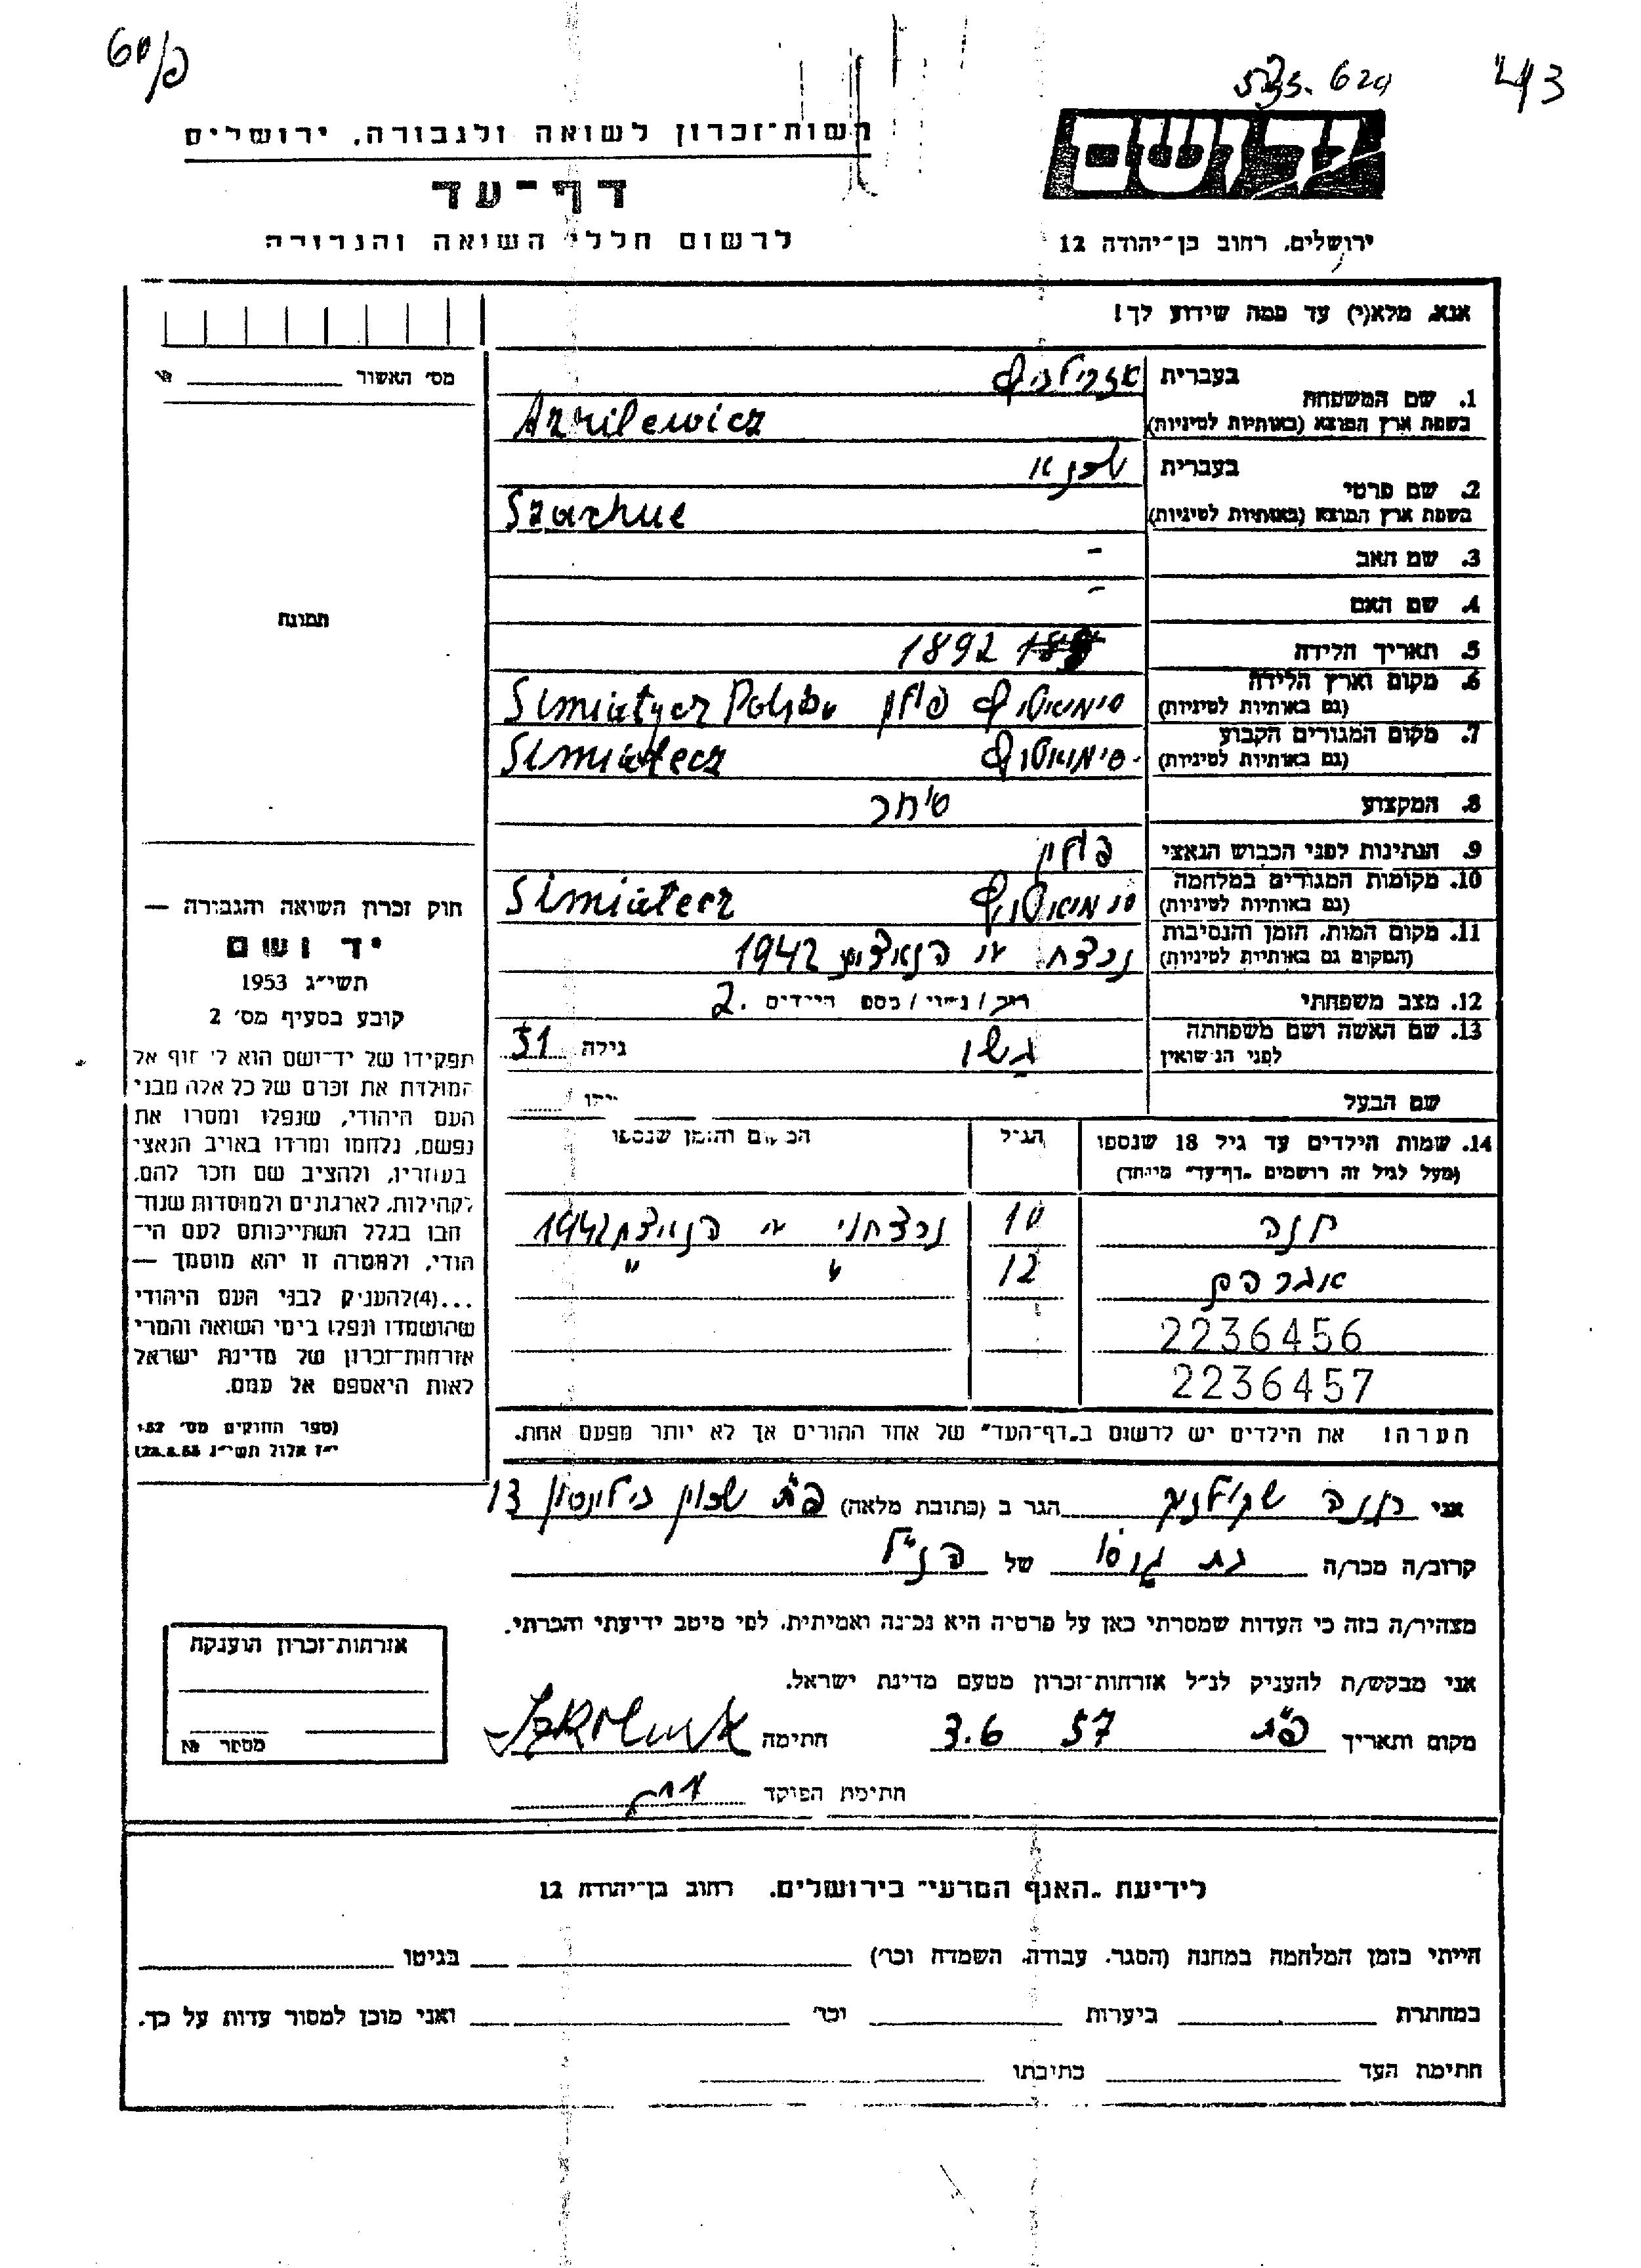 43
620
רשות־זכרון לשואה ולגבורה, ירושלים
דף־עד
לרשום חללי השואה והגבורה
ידושם
ירושלים, רחוב בן־יהודה 12
אנא, מלא(י) עד כמה שידוע לך!
מס׳ האשור №
1. שם המשפחה בעברית אזרילביץ
בשפת ארץ המוצא (באותיות לטיניות) Azrilewicz
2. שם פרטי בעברית שכנא
בשפת ארץ המוצא (באותיות לטיניות) Szachne
3. שם האב -
4. שם האם -
5. תאריך הלידה 1892
6. מקום וארץ הלידה
(גם באותיות לטיניות) סימיאטיץ פולין Simiatycz Polska
7. מקום המגורים הקבוע
(גם באותיות לטיניות) סימיאטיץ Simiatecz
8. המקצוע סוחר
9. הנתינות לפני הכבוש הנאצי פולין
10. מקומות המגורים במלחמה
(גם באותיות לטיניות) סימיאטיץ Simiatecz
11. מקום המות, הזמן והנסיבות
(המקום גם באותיות לטיניות) נרצח ע"י הנאצים 1942
12. מצב משפחתי רוק / נשוי / מספר הילדים 2.
13. שם האשה ושם משפחתה
לפני הנישואין גילה 51
שם הבעל גילו
14. שמות הילדים עד גיל 18 שנספו הגיל המקום והזמן שנספו
(מעל לגיל זה רושמים "דף־עד" מיוחד)
חנה 10 נרצחו ע"י הנאצים 1942
אברהם 12 " "
2236456
2236457
הערה! את הילדים יש לרשום ב"דף־העד" של אחד ההורים אך לא יותר מפעם אחת.
תמונה
חוק זכרון השואה והגבורה —
יד ושם
תשי״ג 1953
קובע בסעיף מס׳ 2
תפקידו של יד־ושם הוא לאסוף אל
המולדת את זכרם של כל אלה מבני
העם היהודי, שנפלו ומסרו את
נפשם, נלחמו ומרדו באויב הנאצי
בעוזריו, ולהציב שם וזכר להם,
לקהילות, לארגונים ולמוסדות שנח־
רבו בגלל השתייכותם לעם הי־
הודי, ולמטרה זו יהא מוסמך —
...(4)להעניק לבני העם היהודי
שהושמדו ונפלו בימי השואה והמרי
אזרחות־זכרון של מדינת ישראל
לאות היאספם אל עמם.
(ספר החוקים מס׳ 132
י״ז אלול תשי״ג 28.8.53)
אני חנה הגר ב (כתובת מלאה) פ"ת שכון 13
קרוב/ה מכר/ה של הנ"ל
מצהיר/ה בזה כי העדות שמסרתי כאן על פרטיה היא נכונה ואמיתית, לפי מיטב ידיעתי והכרתי.
אני מבקש/ת להעניק לנ״ל אזרחות־זכרון מטעם מדינת ישראל.
מקום ותאריך פ"ת 3.6 57 חתימה
חתימת הפוקד
אזרחות־זכרון הוענקה
מספר №
לידיעת "האגף המדעי" בירושלים, רחוב בן־יהודה 12
הייתי בזמן המלחמה במחנה (הסגר, עבודה, השמדה וכו׳) בגיטו
במחתרת ביערות וכו׳ ואני מוכן למסור עדות על כך.
חתימת העד כתובתו